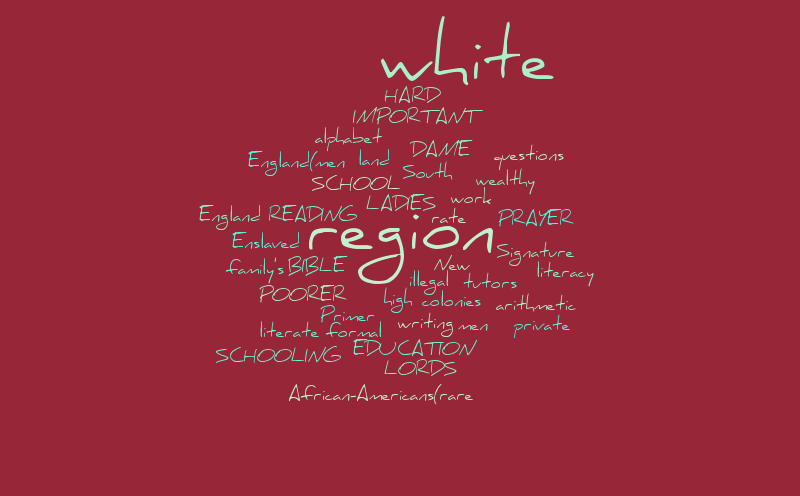 white
HARD
IMPORTANT
alphabet
DAME
England(men land
questions
South
SCHOOL
wealthy
LADIES work
England READING
rate
PRAYER
Enslaved
region
Signature
family's BIBLE
New
literacy
illegal tutors
POORER
high colonies
arithmetic
Primer
writing men
private
literate formal
SCHOOLING
EDUCATION
LORDS
African-Americans(rare